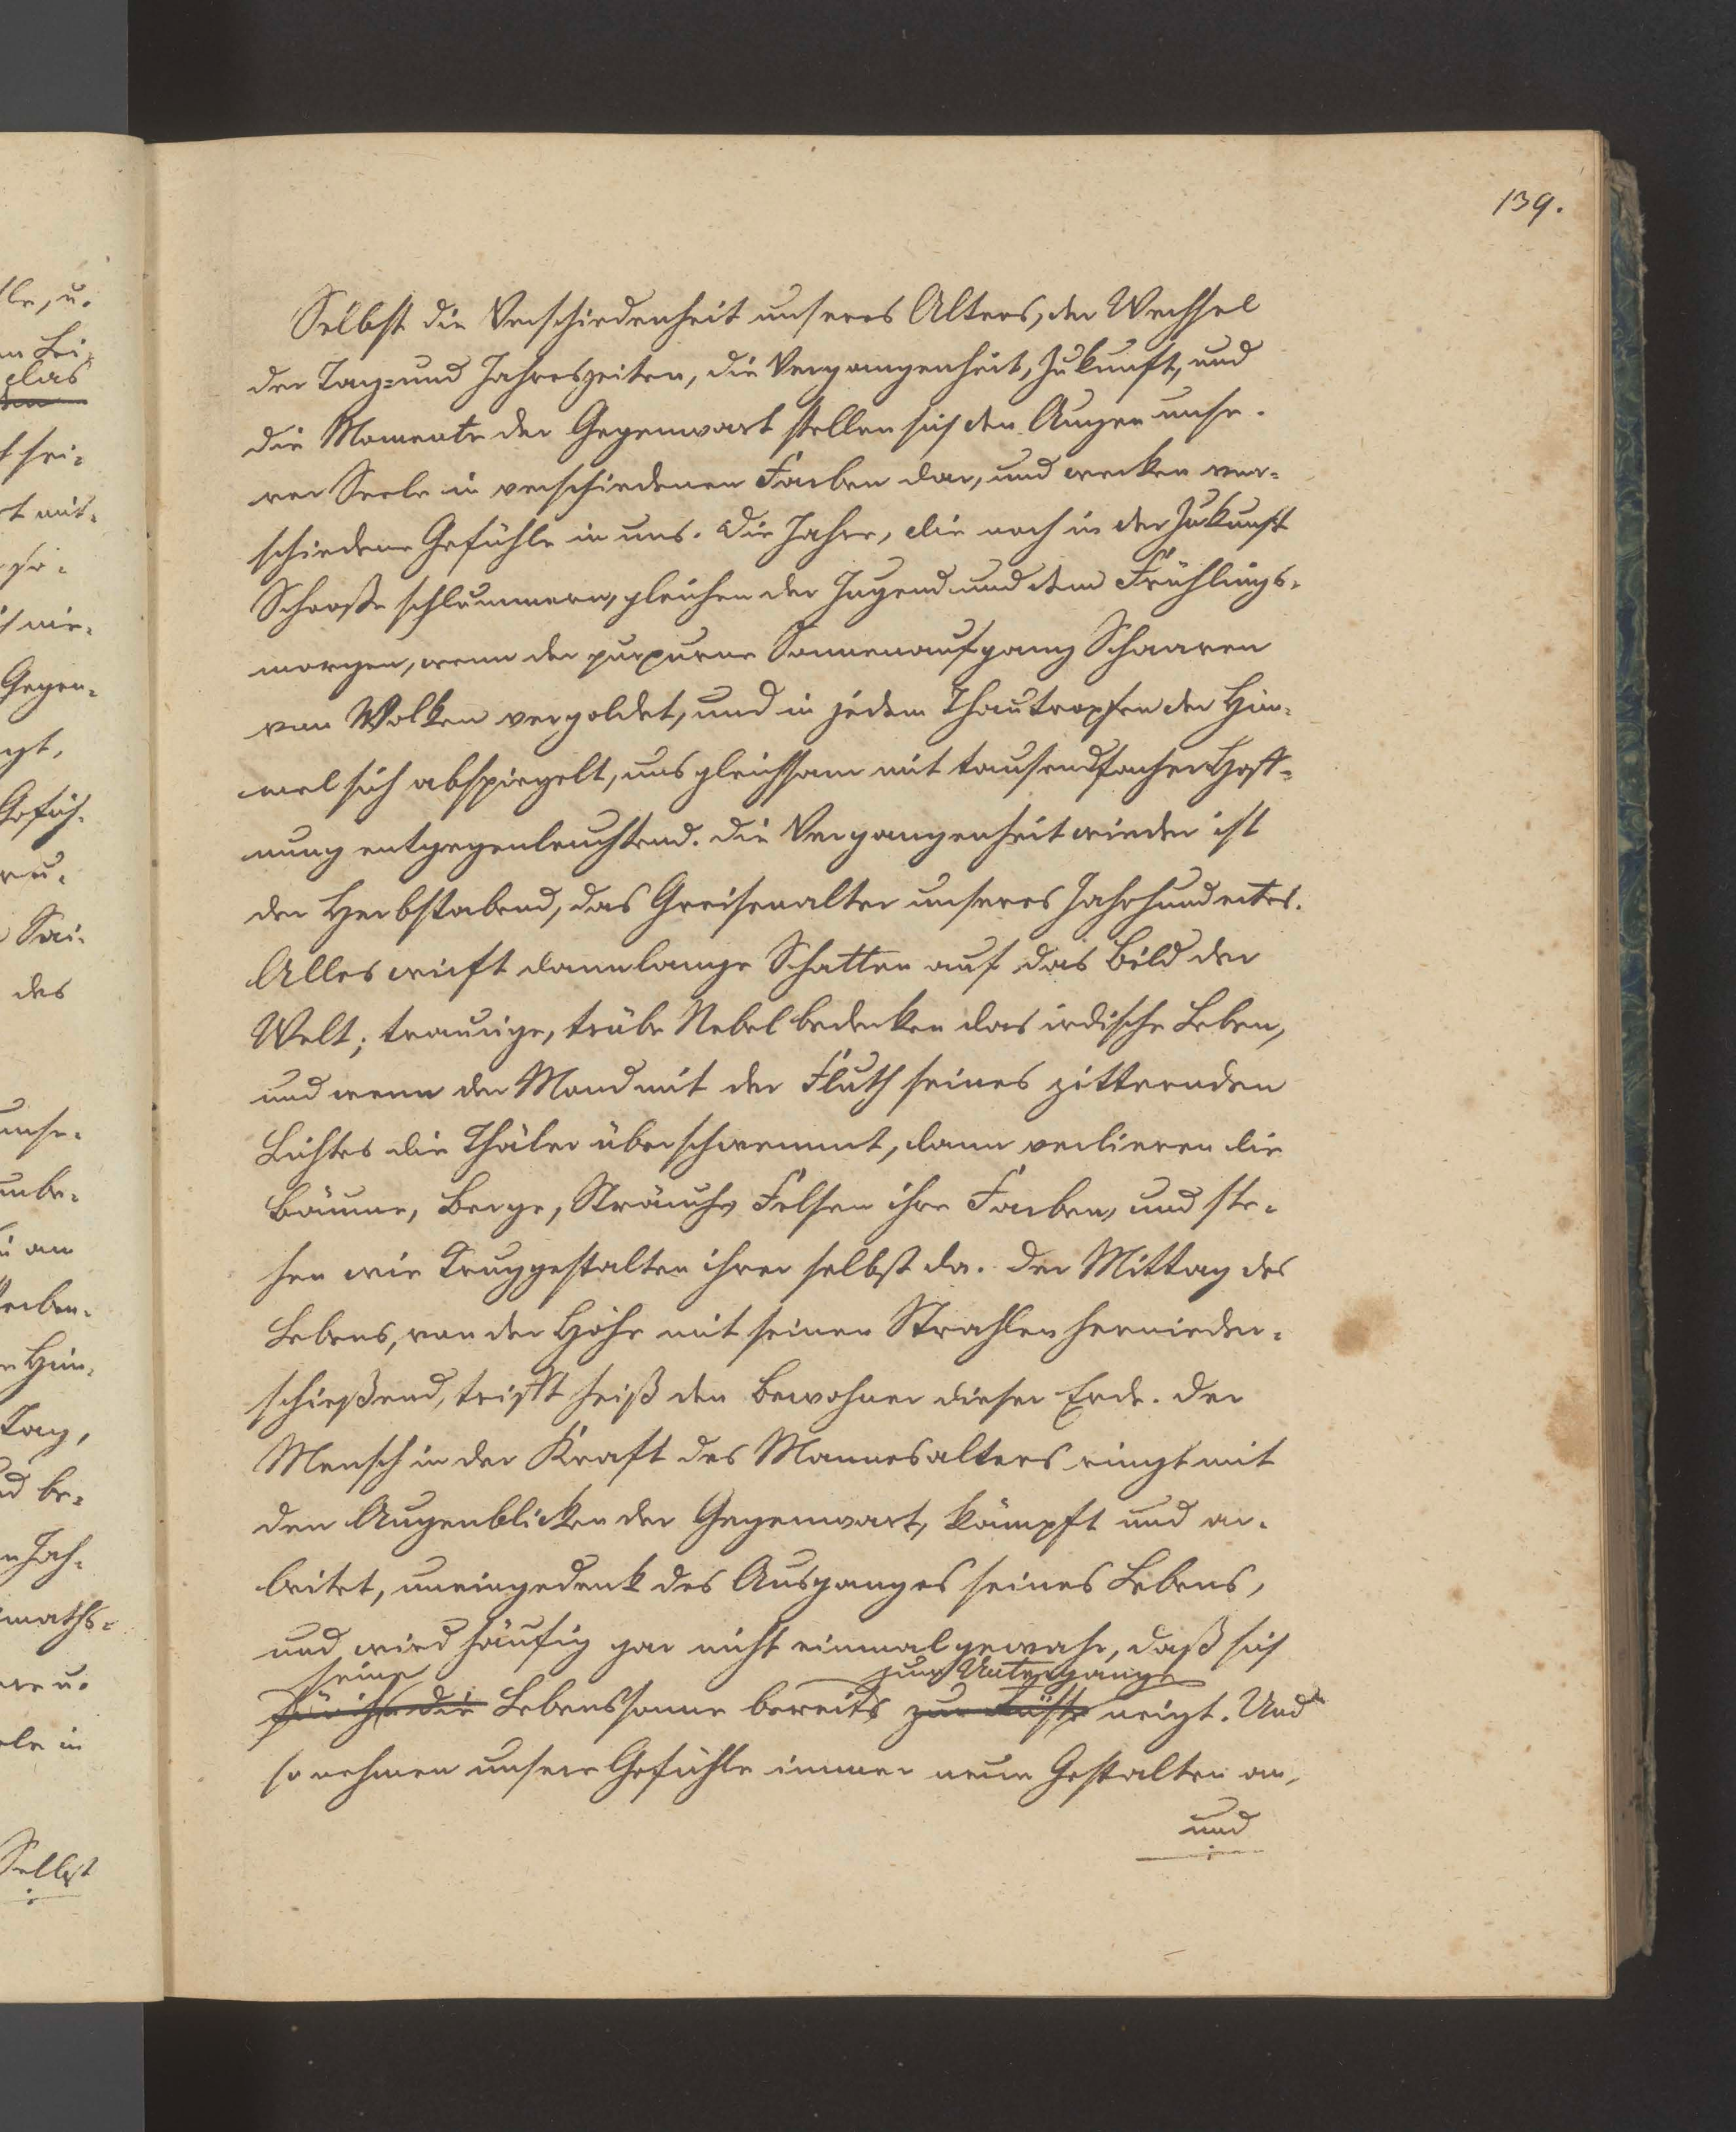 139.
Selbst die Verschiedenheit unseres Alters, der Wechsel
der Tag= und Jahreszeiten, die Vergangenheit, Zukunft, und
die Momente der Gegenwart stellen sich den Augen unse-
rer Seele in verschiedenen Farben dar, und wecken ver-
schiedene Gefühle in uns. Die Jahre, die noch in der Zukunft
Schooße schlummern, gleichen der Jugend und dem Frühlings-
morgen, wenn der purpurne Sonnenaufgang Schaaren
von Wolken vergoldet, und in jedem Thautropfen der Him-
mel sich abspiegelt, uns gleichsam mit tausendfacher Hoff-
nung entgegenleuchtend. Die Vergangenheit wieder ist
der Herbstabend, das Greisenalter unseres Jahrhundertes.
Alles wirft dann lange Schatten auf das Bild der
Welt; traurige, trübe Nebel bedecken das irdische Leben,
und wenn der Mond mit der Fluth seines zitternden
Lichtes die Thäler überschwemmt, dann verlieren die
Bäume, Berge, Sträuche, Felsen ihre Farben, und ste-
hen wie Truggestalten ihrer selbst da. Der Mittag des
Lebens, von der Höhe mit seinen Strahlen hernieder-
schießend, trifft heiß den Bewohner dieser Erde. Der
Mensch in der Kraft des Mannesalters ringt mit
den Augenblicken der Gegenwart, kämpft und ar-
beitet, uneingedenk des Ausganges seines Lebens,
und wird häufig gar nicht einmal gewahr, daß sich
seine zum Untergange
für ihn die Lebenssonne bereits zur Rüste neigt. Und
so nehmen unsere Gefühle immer neue Gestalten an,
und